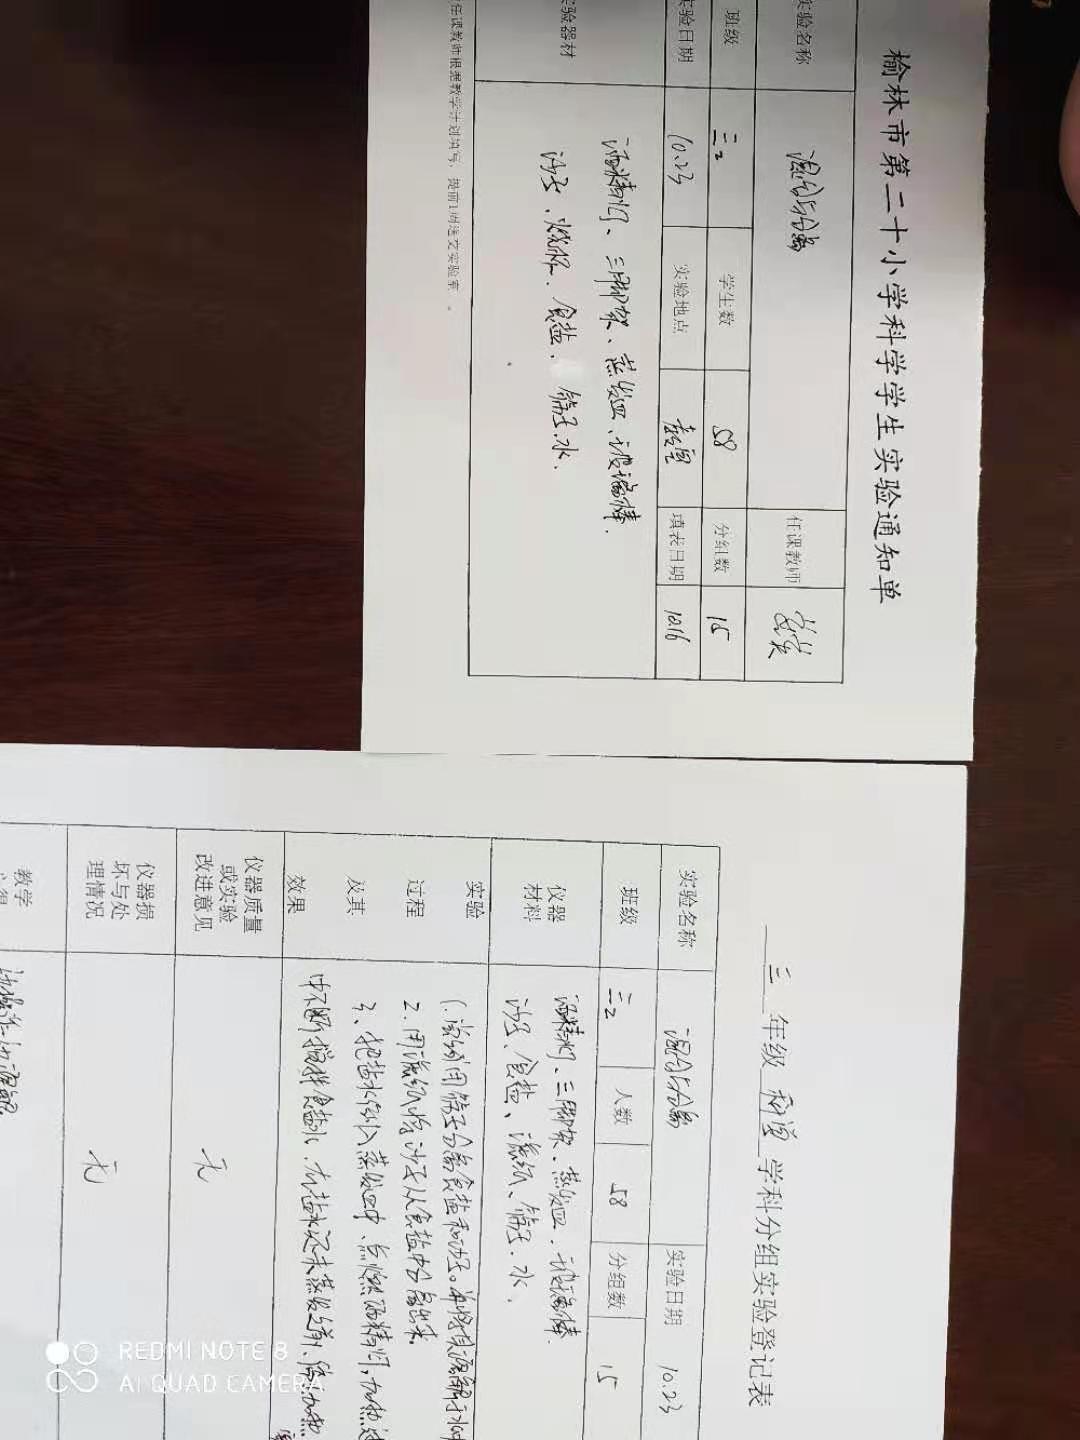 榆林市第二十小学科学学生实验通知单
实验名称 混合与分离 任课教师
班级 三2 学生数 58 分组数 15
实验日期 10.23 实验地点 填表日期 10.16
实验器材
酒精灯、三脚架、蒸发皿、玻璃棒.
沙子、烧杯、食盐、筛子、水.
任课教师根据教学计划填写,提前1周送交实验室。
三 年级 科学 学科分组实验登记表
实验名称 混合与分离 实验日期 10.23
班级 三2 人数 58 分组数 15
仪器材料
酒精灯、三脚架、蒸发皿、玻璃棒.
沙子、食盐、滤纸、筛子、水.
实验过程及其效果
1.尝试用筛子分离食盐和沙子。并将其溶解于水中
2.用滤纸将沙子从食盐中分离出来.
3、把盐水倒入蒸发皿中、点燃酒精灯,加热过
中不断搅拌食盐水,在盐水还未蒸发之前,停止加热
仪器质量或实验改进意见 无
仪器损坏与处理情况 无
教学
REDMI NOTE 8
AI QUAD CAMERA